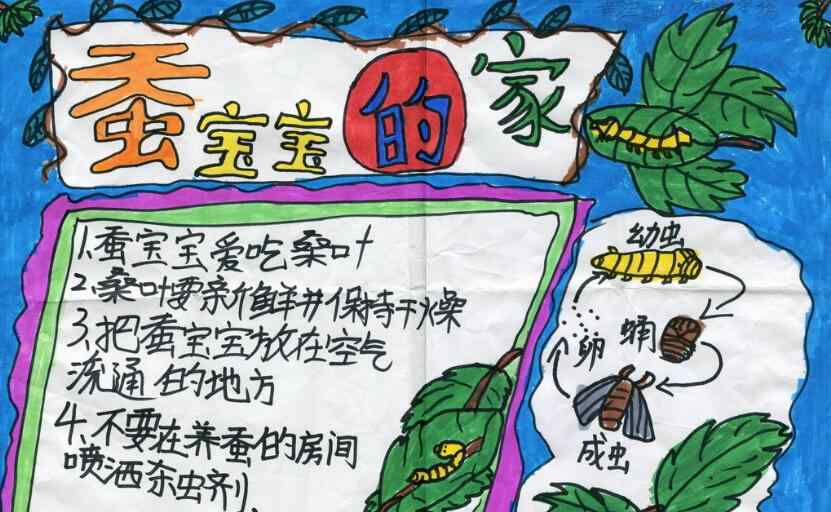 蚕宝宝的家
1.蚕宝宝爱吃桑叶
2.桑叶要新鲜并保持干燥
3.把蚕宝宝放在空气
流通的地方
4.不要在养蚕的房间
喷洒杀虫剂.
幼虫
蛹
卵
成虫